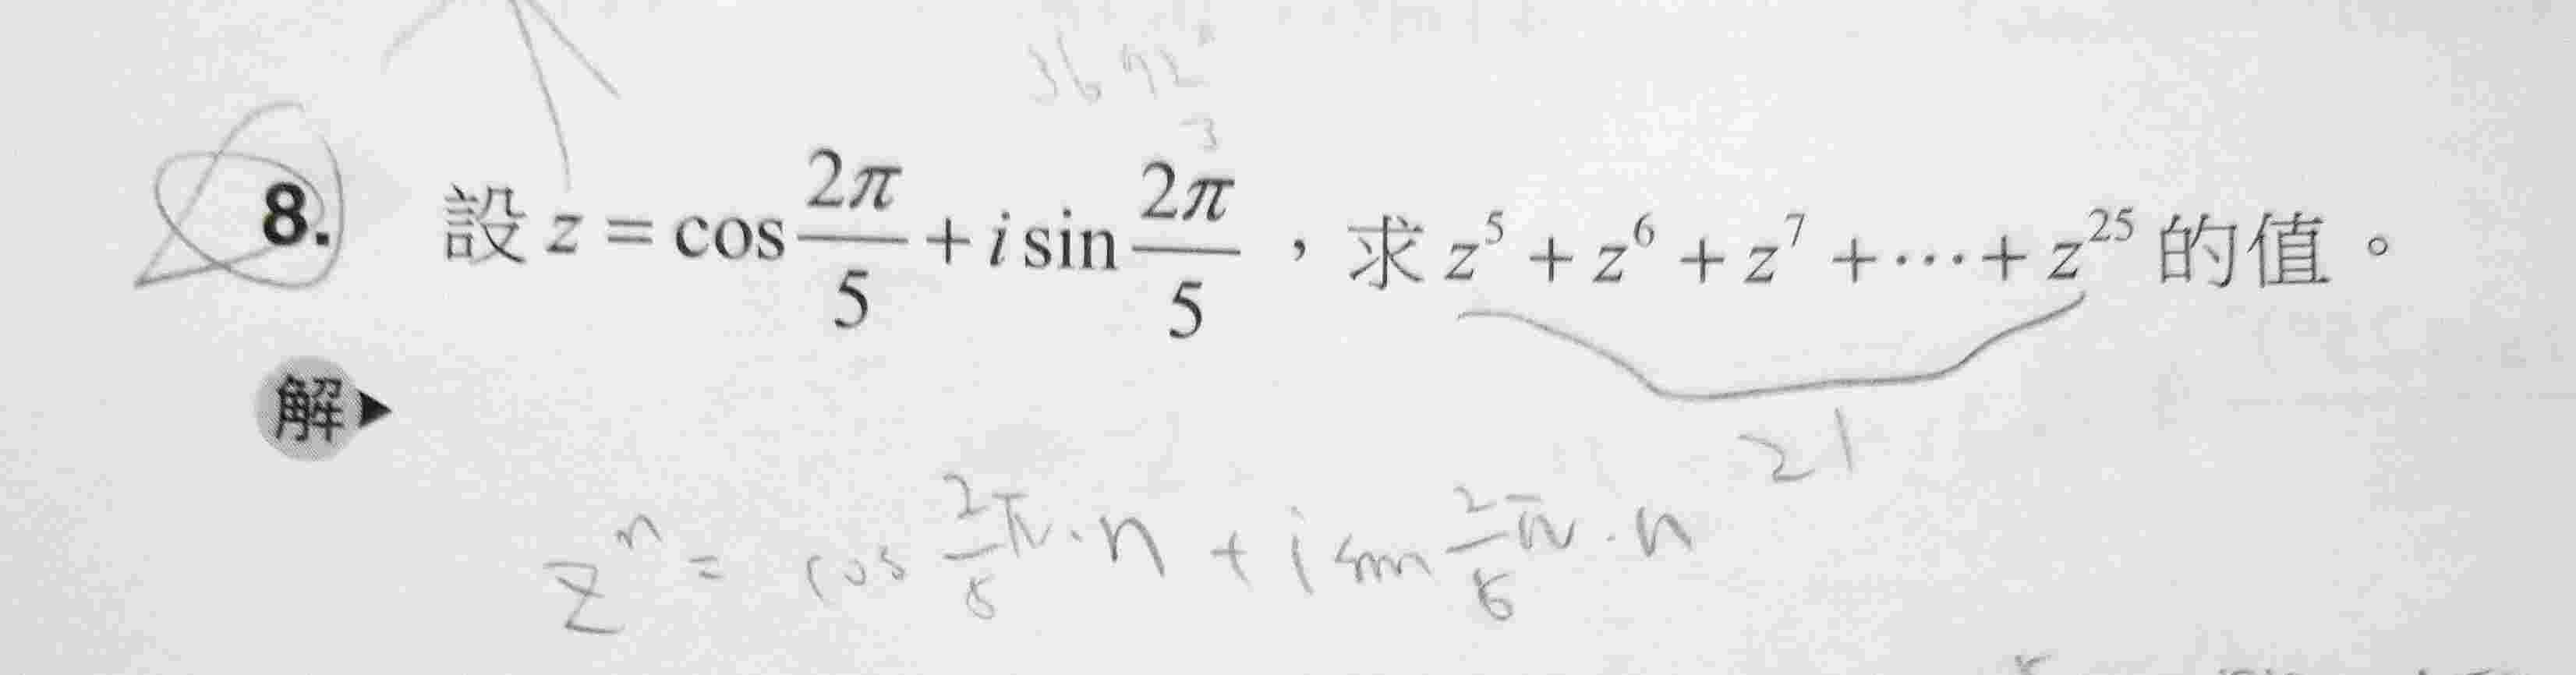 3692°
3
8. 設 z = cos 2π/5 + i sin 2π/5 ，求 z⁵ + z⁶ + z⁷ + ⋯ + z²⁵ 的值。
21
解▶
zⁿ = cos 2/5 π · n + i sin 2/5 π · n